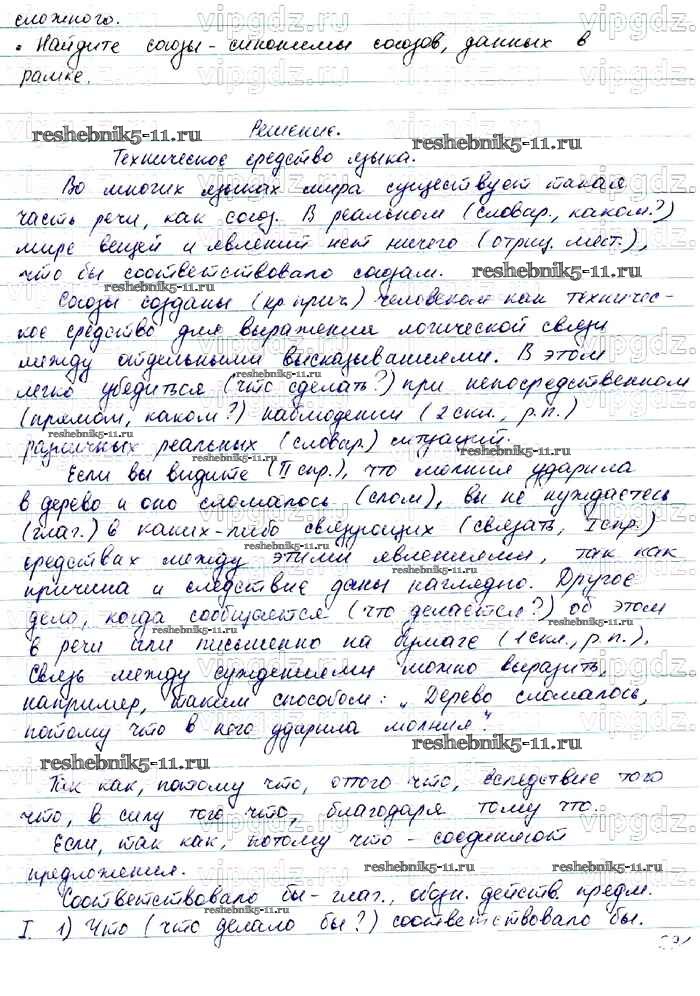 сложного.
• Найдите союзы-синонимы союзов, данных в
рамке.
Решение.
Техническое средство языка.
Во многих языках мира существует такая
часть речи, как союз. В реальном (словар., каком?)
мире вещей и явлений нет ничего (отриц. мест.),
что бы соответствовало союзам.
Союзы созданы (кр. прич.) человеком как техничес-
кое средство для выражения логической связи
между отдельными высказываниями. В этом
легко убедиться (что сделать?) при непосредственном
(прямом, каком?) наблюдении (2 скл., р.п.)
различных реальных (словар.) ситуаций.
Если вы видите (II спр.), что молния ударила
в дерево и оно сломалось (слом), вы не нуждаетесь
(глаг.) в каких-либо связующих (связать, I спр.)
средствах между этими явлениями, так как
причина и следствие даны наглядно. Другое
дело, когда сообщается (что делается?) об этом
в речи или письменно на бумаге (1 скл., р.п.).
Связь между суждениями можно выразить,
например, таким способом: „Дерево сломалось,
потому что в него ударила молния".
Так как, потому что, оттого что, вследствие того
что, в силу того что, благодаря тому что.
Если, так как, потому что - соединяют
предложения.
Соответствовало бы - глаг., обозн. действ. предм.
I. 1) Что (что делало бы?) соответствовало бы.
vipgdz.ru
reshebnik5-11.ru